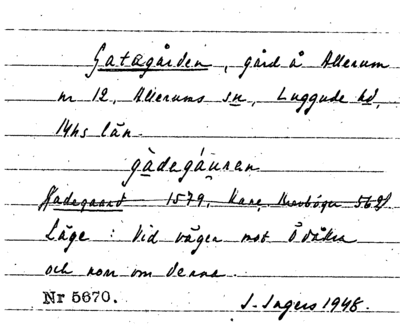 Gatagården, gård å Allerum
nr 12, Allerums sn, Luggude hd,
Mhs län.
gàdagáuran
Gadegaard 1579, Kane, 562
Läge: Vid vägen mot Ödåkra
och norr om denna.
Nr 5670. I. Ingers 1948.